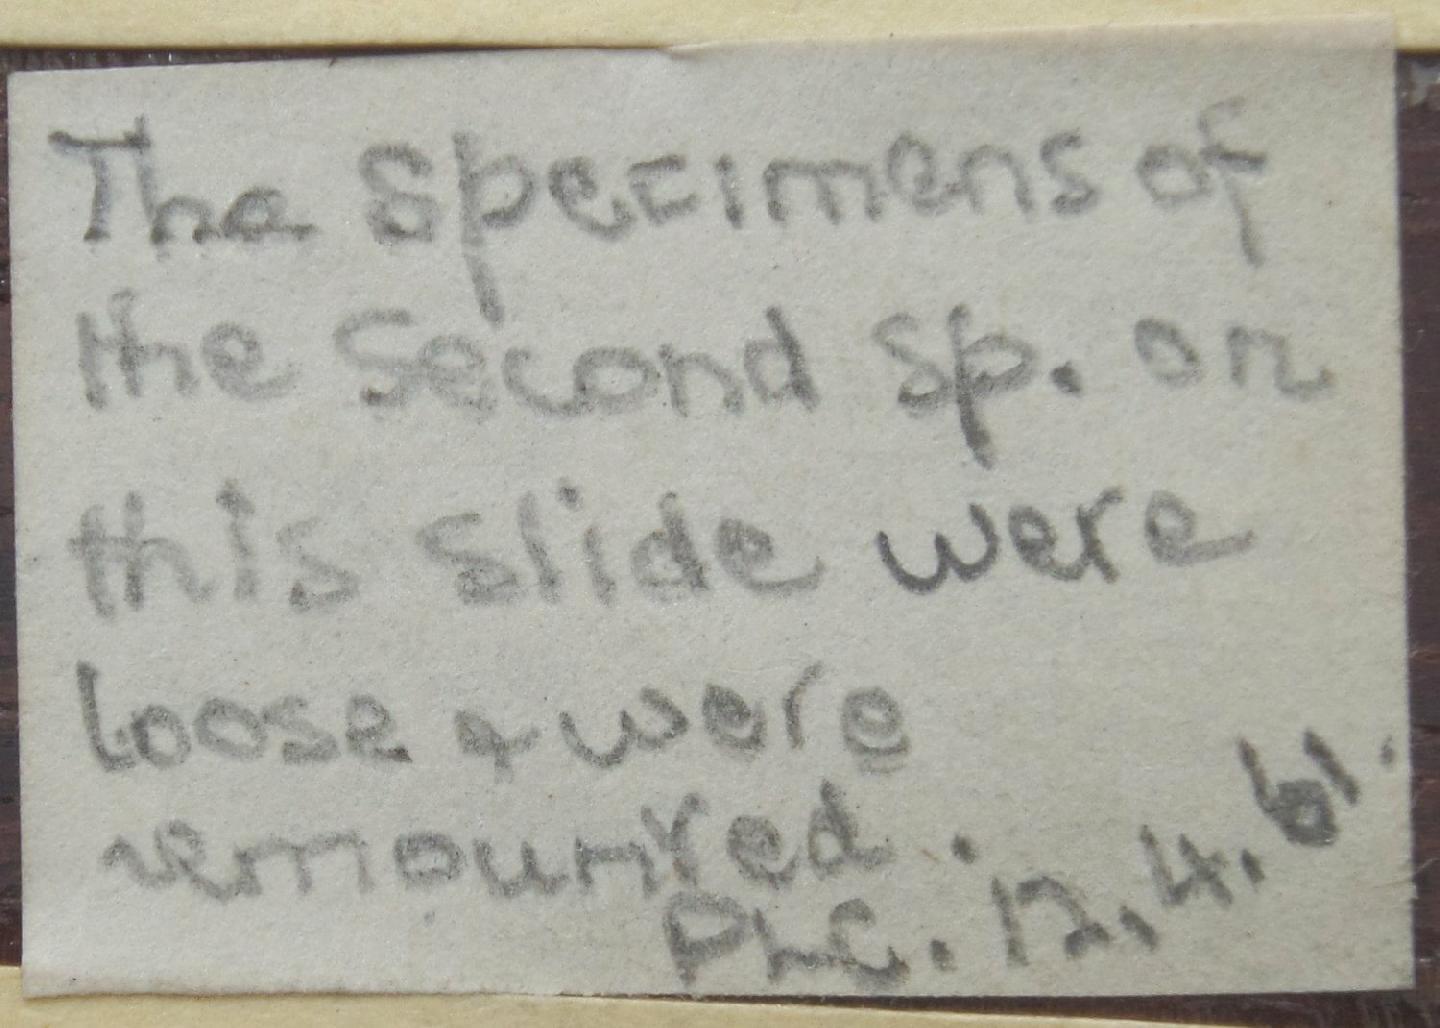 The specimens of
the second sp. on
this slide were
loose & were
remounted.
PLG. 12.4.61.